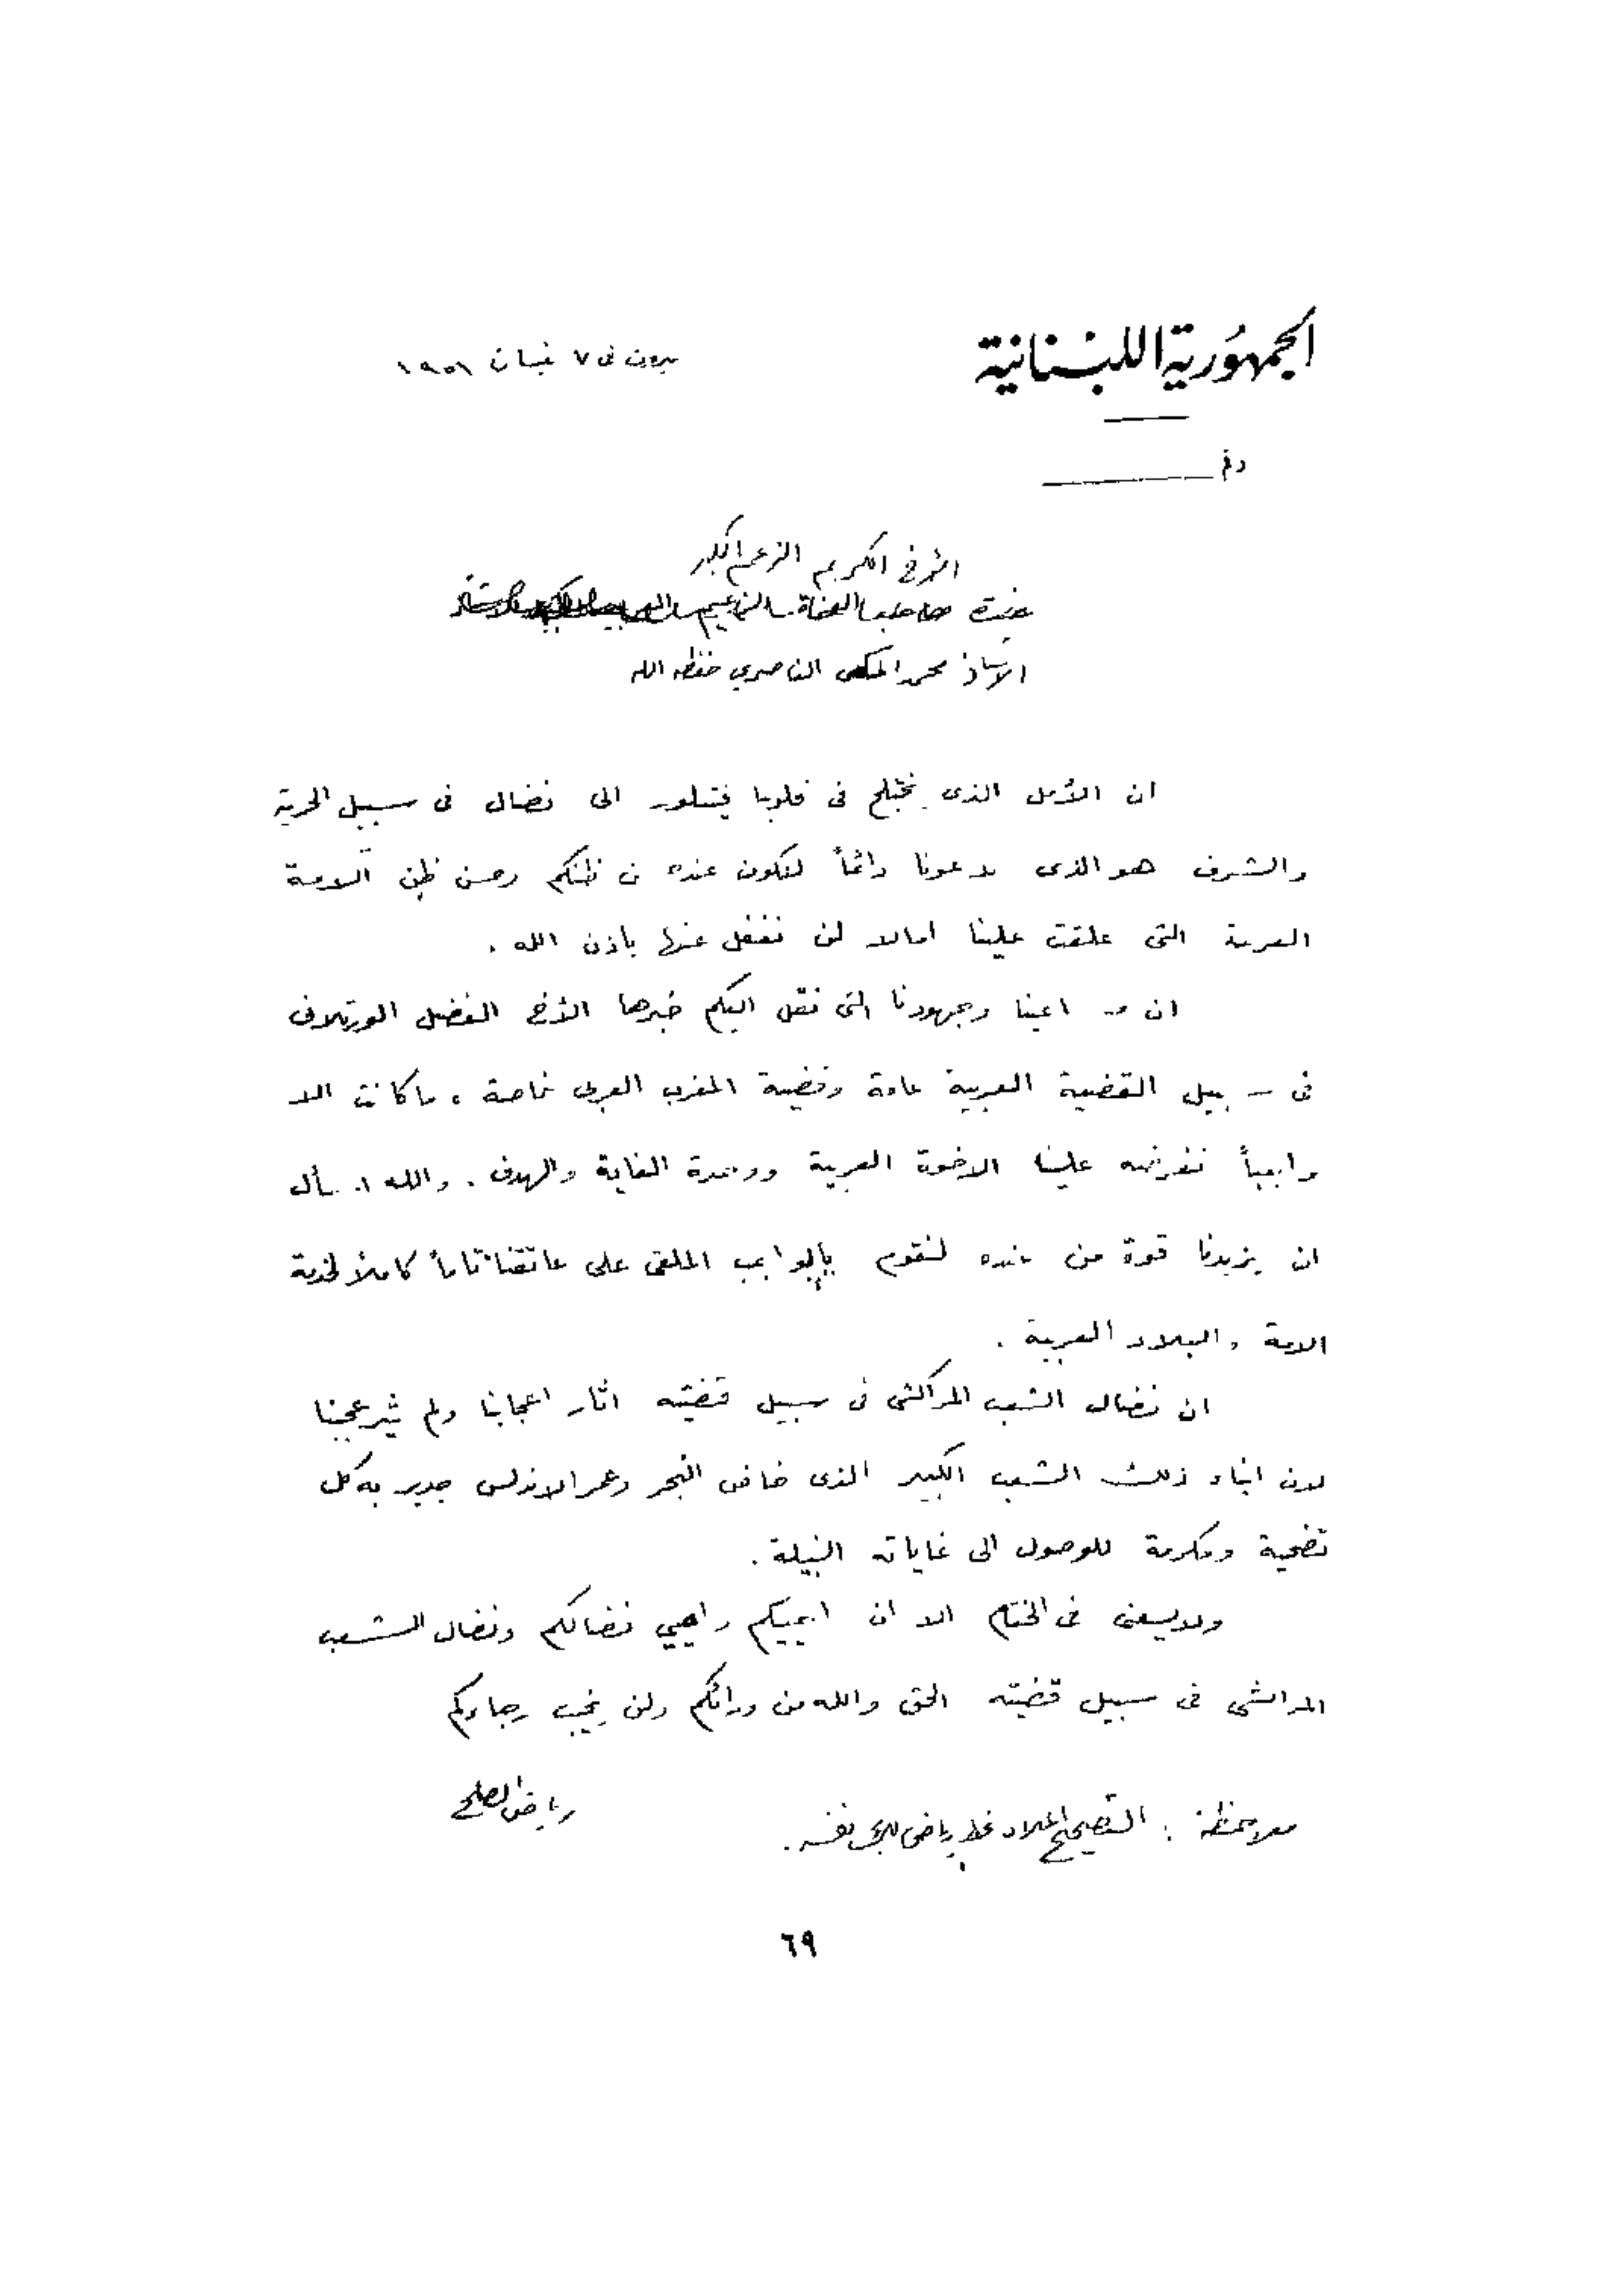 الجمهورية اللبنانية
بيروت فى ٧ نيسان ١٩٥١
رقم
الأخ الكريم الزعيم الكبير
حضرة صاحب الزعيم
الاستاذ محمد المكى الناصري حفظه الله
ان الأمل الذى يختلج فى قلوبنا فيتبلور الى نضال فى سبيل الحرية
والشرف هو الذى يدعونا دائماً لنكون عند ظنكم وحسن ظن الامة
العربية التى علقت علينا امالا لن نغفل عنها باذن الله .
ان مساعينا وجهودنا التى نقل اليكم خبرها الأخ الفضيل الورتلانى
فى سبيل القضية العربية عامة وقضية المغرب العربى خاصة ، ما كانت الا
واجباً تفرضه علينا الاخوة العربية ووحدة الغاية والهدف . والله اسأل
ان يزيدنا قوة من عنده لنقوم بالواجب الملقى على عاتقنا تاماً كاملاً لخدمة
الامة والبلاد العربية .
ان نضال الشعب المراكشى فى سبيل قضيته اثار اعجابنا ولم يثر عجبنا
لان ابناء ذلك الشعب الكبير الذى خاض البحر وعمر الاندلس جدير به كل
تضحية ومكرمة للوصول الى غاياته النبيلة .
ولا يسعنى فى الختام الا ان احييكم واحيي نضالكم ونضال الشعب
المراكشى فى سبيل قضيته الحق والله من ورائكم ولن يخيب رجاءكم
رياض الصلح
ملاحظة : التصحيح اعلاه بخط رياض بك نفسه .
٦٩